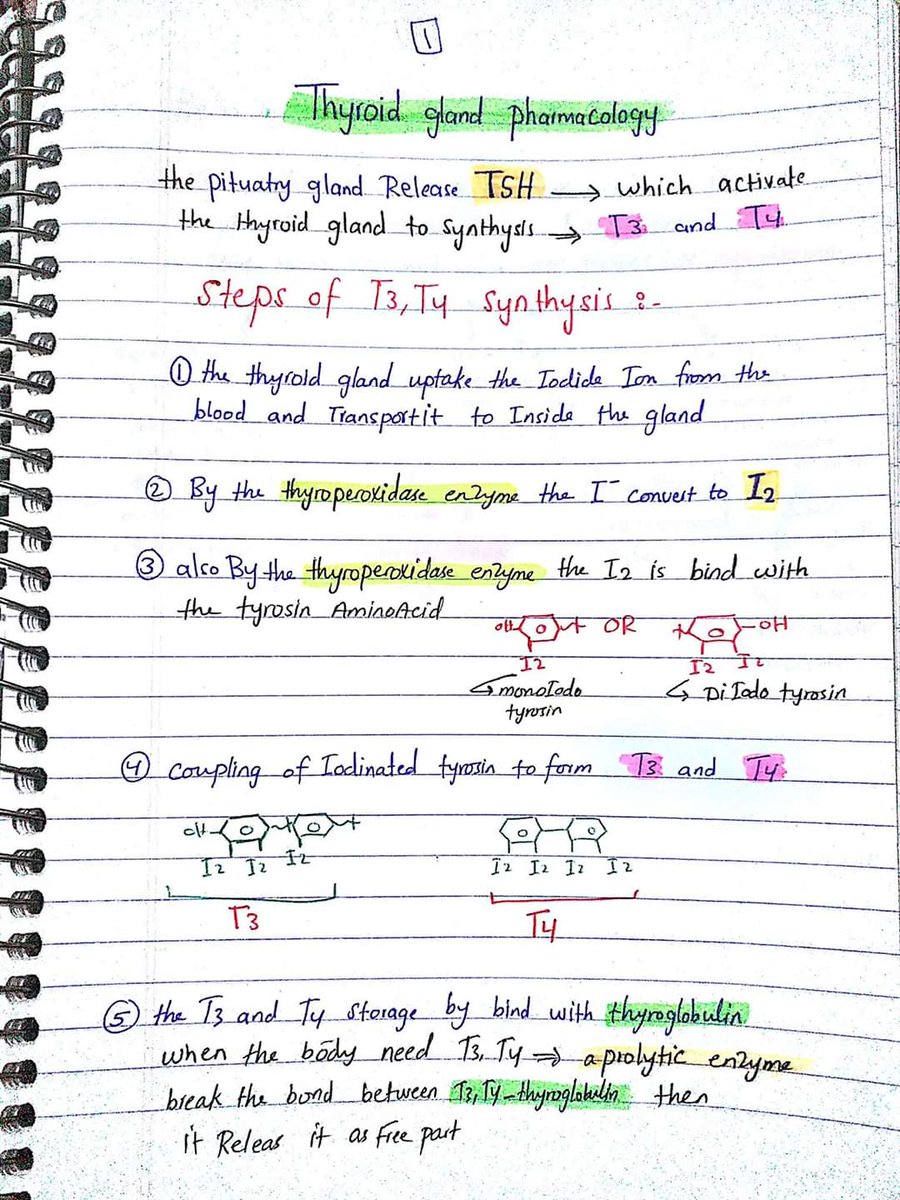 1
Thyroid gland pharmacology
the pituatry gland Release TSH → which activate
the thyroid gland to synthysis → T3 and T4
Steps of T3, T4 synthysis :-
① the thyroid gland uptake the Iodide Ion from the
blood and Transport it to Inside the gland
② By the thyroperoxidase enzyme the I⁻ convert to I2
③ also By the thyroperoxidase enzyme the I2 is bind with
the tyrosin AminoAcid
OH OR OH
I2 I2 I2
monoIodo DiIodo tyrosin
tyrosin
④ coupling of Iodinated tyrosin to form T3 and T4
OH
I2 I2 I2 I2 I2 I2 I2
T3 T4
⑤ the T3 and T4 storage by bind with thyroglobulin
when the body need T3, T4 ⇒ a prolytic enzyme
break the bond between T3, T4-thyroglobulin then
it Releas it as Free part